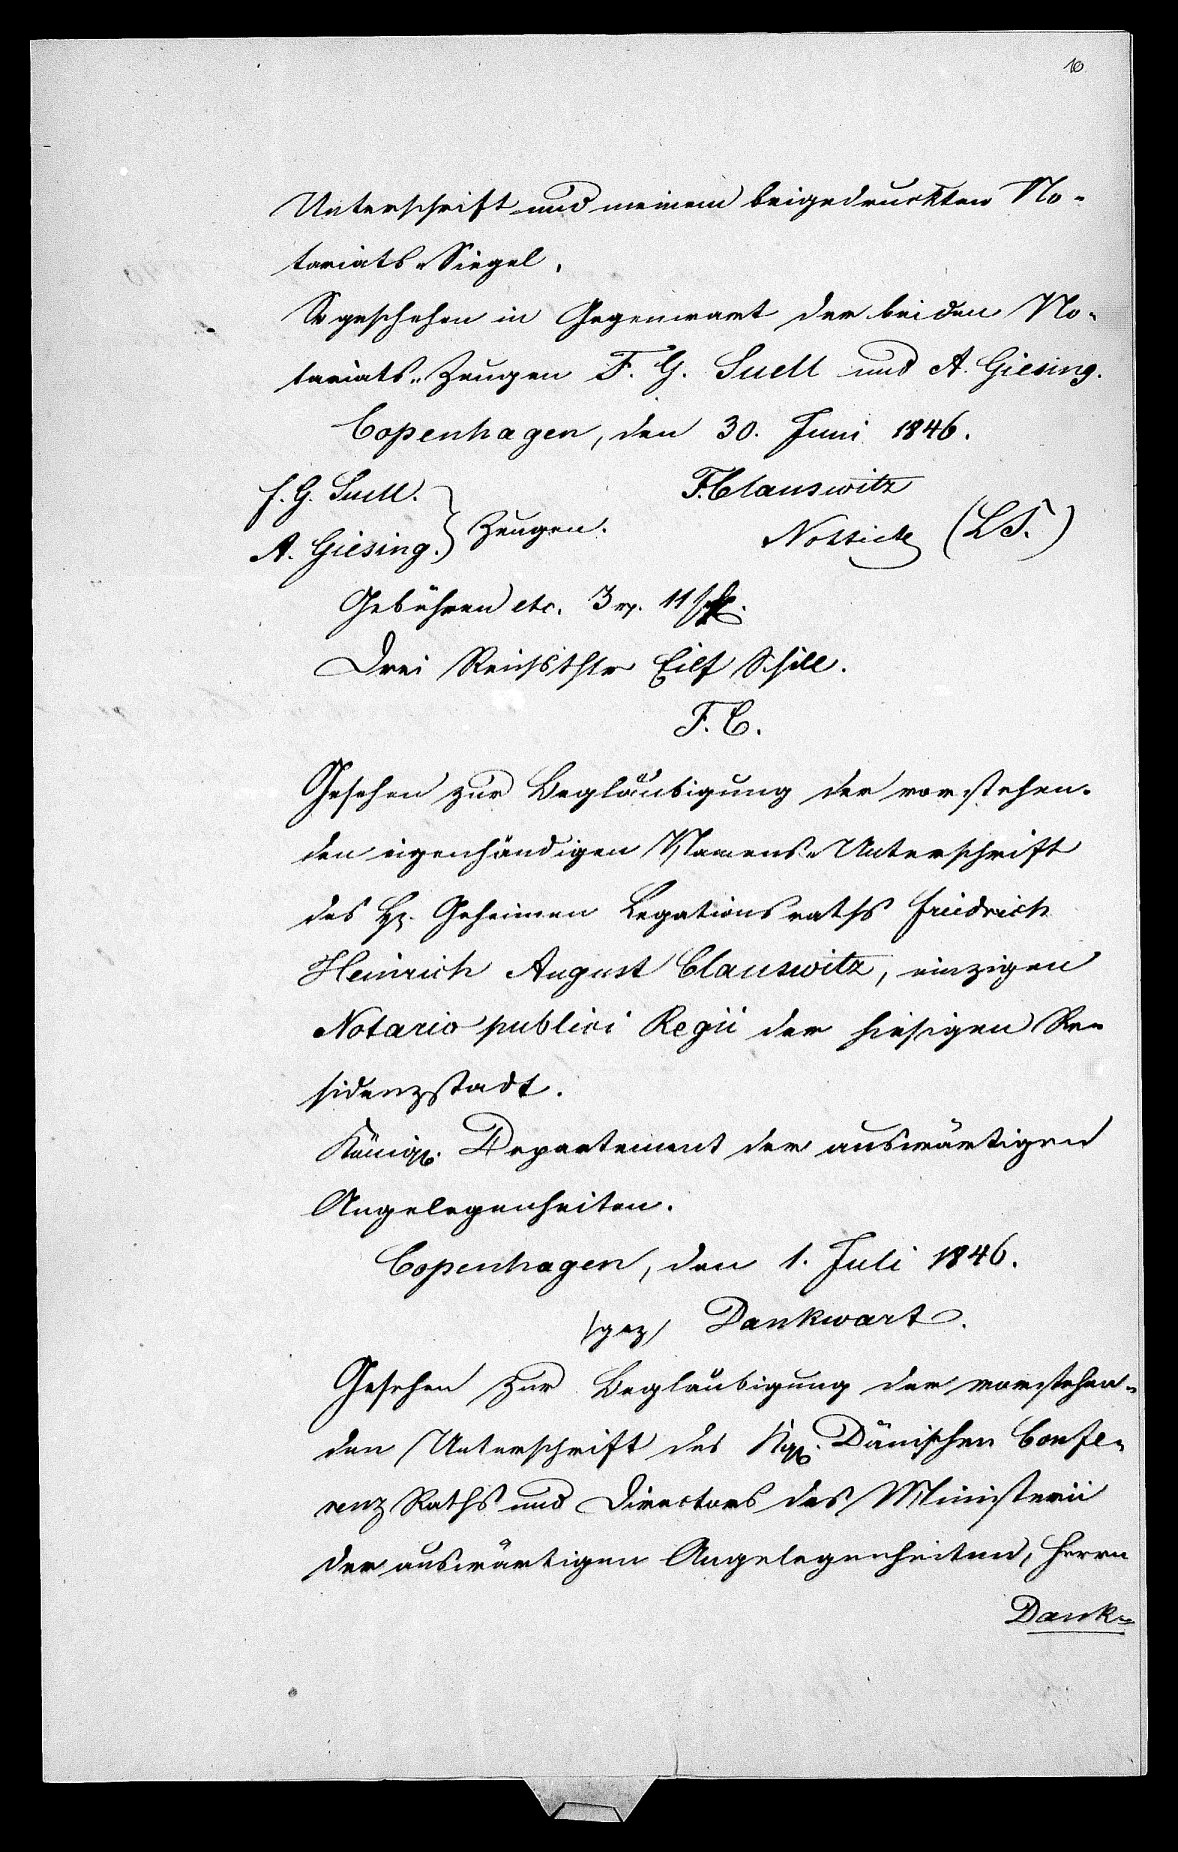 10
Unterschrift und meinem beigedruckten No-
tariats-Siegel.
So geschehen in Gegenwart der beiden No-
tariats-Zeugen F. G. Suell und A. Giesing.
Copenhagen, den 30. Juni 1846.
F. G. Suell.
A. Giesing.
Zeugen.
F. Clauswitz
(LS.)
Gebühren etc. 3 11
Drei Reichsthlr Eilf Schill.
F. C.
Gesehen zur Begläubigung der vorstehen-
den eigenhändigen Namens-Unterschrift
des H. Geheimen Legationsraths Friedrich
Heinrich August Clauswitz, einzigen
Notario publici Regii der hiesigen Re-
sidenzstadt.
Königl. Departement der auswärtigen
Angelegenheiten.
Copenhagen, den 1. Juli 1846.
/gez/ Dankwart.
Gesehen zur Begläubigung der vorstehen-
den Unterschrift des Kgl. Dänischen Confe-
renz Raths und Directors des Ministerii
der auswärtigen Angelegenheiten, Herrn
Dank-